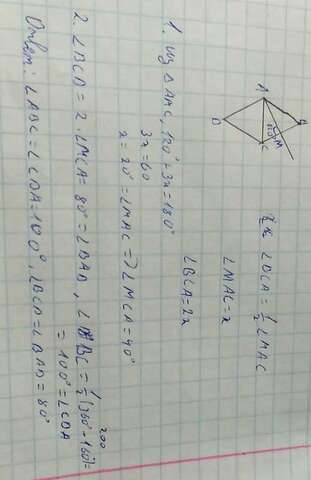 A
B
M
120°
C
D
∠BCA = 1/2 ∠MAC
∠MAC = x
∠BCA = 2x
1. Из △AAC, 120° + 3x = 180°
3x = 60
x = 20° = ∠MAC => ∠MCA = 40°
2. ∠BCD = 2·∠MCA = 80° = ∠BAD, ∠ABC = 1/2 (360° - 160°) =
200
= 100° = ∠CDA
Ответ: ∠ABC = ∠CDA = 100°, ∠BCD = ∠BAD = 80°